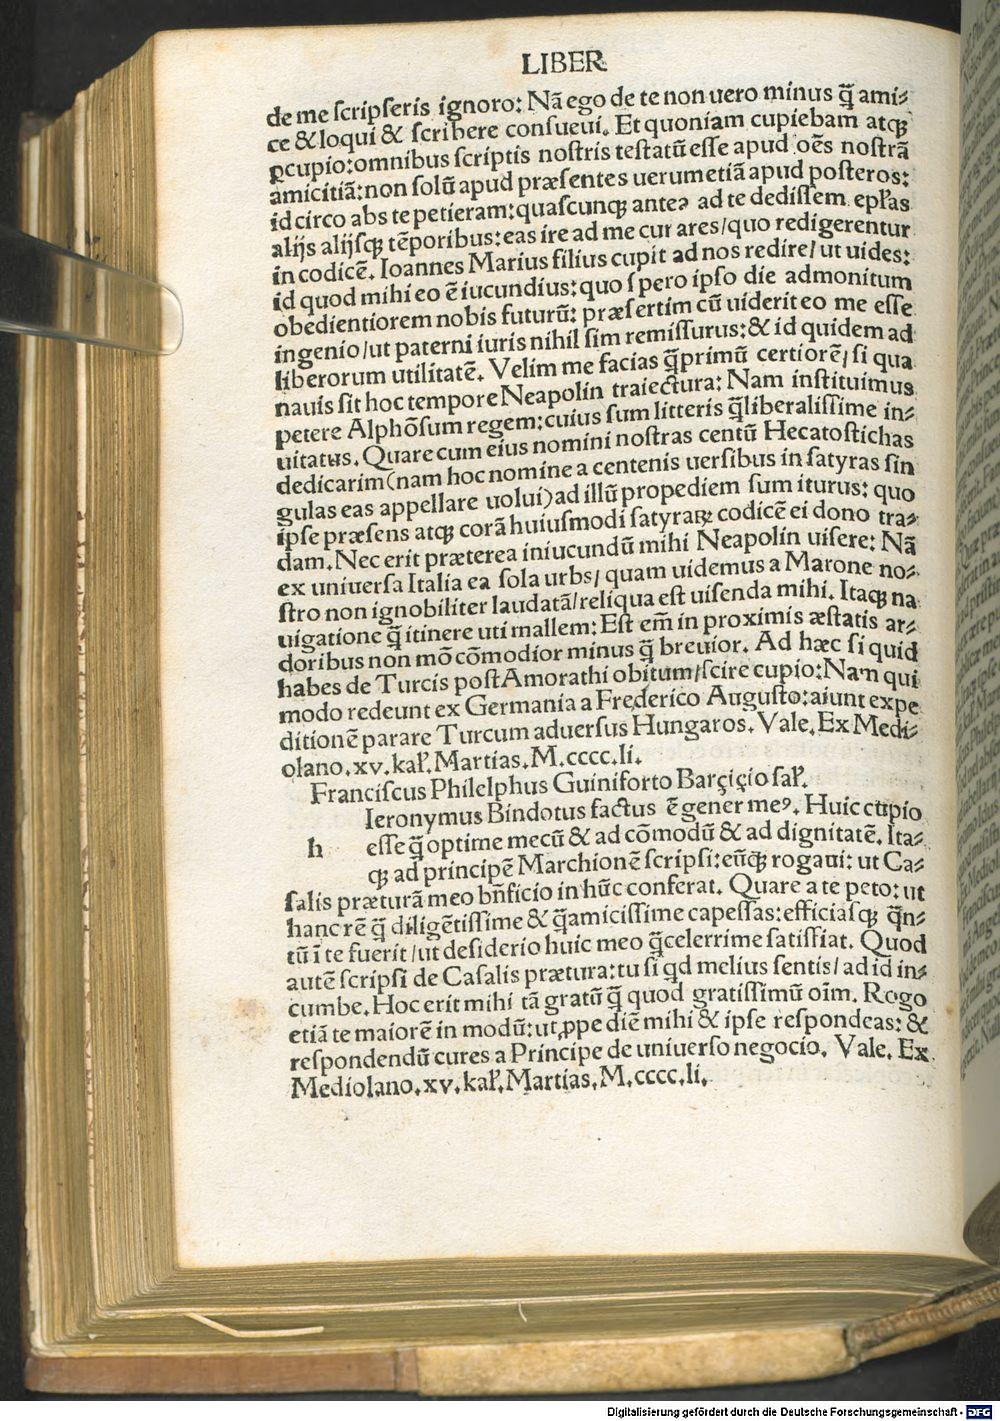 LIBER
de me ſcripſeris ignoro: Nā ego de te non uero minus q̄ ami⸗
ce & loqui & ſcribere conſueui. Et quoniam cupiebam atqꝫ
ꝑcupio: omnibus ſcriptis noſtris teſtatū eſſe apud oēs noſtrā
amicitiā: non ſolū apud præſentes uerumetiā apud poſteros:
idcirco abs te petieram: quaſcunqꝫ anteꝰ ad te dediſſem epl̄as
alijs alijſqꝫ tēporibus: eas ire ad me cur ares/ quo redigerentur
in codicē. Ioannes Marius filius cupit ad nos redire/ ut uides:
id quod mihi eo ē iucundius: quo ſpero ipſo die admonitum
obedientiorem nobis futurū: præſertim cū uiderit eo me eſſe
ingenio/ ut paterni iuris nihil ſim remiſſurus: & id quidem ad
liberorum utilitatē. Velim me facias q̄primū certiorē/ ſi qua
nauis ſit hoc tempore Neapolin traiectura: Nam inſtituimus
petere Alphōſum regem: cuius ſum litteris q̄liberaliſſime in⸗
uitatus. Quare cum eius nomini noſtras centū Hecatoſtichas
dedicarim (nam hoc nomine a centenis uerſibus in ſatyras ſin
gulas eas appellare uolui) ad illū propediem ſum iturus: quo
ipſe præſens atqꝫ corā huiuſmodi ſatyraꝝ codicē ei dono tra⸗
dam. Nec erit præterea iniucundū mihi Neapolin uiſere: Nā
ex uniuerſa Italia ea ſola urbs/ quam uidemus a Marone no⸗
ſtro non ignobiliter laudatā/ reliqua eſt uiſenda mihi. Itaqꝫ na
uigatione q̄ itinere uti mallem: Eſt em̄ in proximis æſtatis ar⸗
doribus non mō cōmodior minus q̄ breuior. Ad hæc ſi quid
habes de Turcis poſt Amorathi obitum/ ſcire cupio: Nam qui
modo redeunt ex Germania a Frederico Auguſto: aiunt expe
ditionē parare Turcum aduerſus Hungaros. Vale. Ex Medi⸗
olano. xv. kal̄. Martias. M. cccc. li.
Franciſcus Philelphus Guiniforto Barçiçio ſal̄.
Ieronymus Bindotus factus ē gener meꝰ. Huic cupio
h eſſe q̄ optime mecū & ad cōmodū & ad dignitatē. Ita⸗
qꝫ ad principē Marchionē ſcripſi: eūqꝫ rogaui: ut Ca⸗
ſalis præturā meo bn̄ficio in hūc conferat. Quare a te peto: ut
hanc rē q̄ diligētiſſime & q̄amiciſſime capeſſas: efficiaſqꝫ q̄n⸗
tū ī te fuerit/ ut deſiderio huic meo q̄celerrime ſatiſfiat. Quod
autē ſcripſi de Caſalis prætura: tu ſi qd melius ſentis/ ad id in⸗
cumbe. Hoc erit mihi tā gratū q̄ quod gratiſſimū oīm. Rogo
etiā te maiorē in modū: ut ꝓpe diē mihi & ipſe reſpondeas: &
reſpondendū cures a Principe de uniuerſo negocio. Vale. Ex
Mediolano. xv. kal̄. Martias. M. cccc. li.
Digitalisierung gefördert durch die Deutsche Forschungsgemeinschaft - DFG